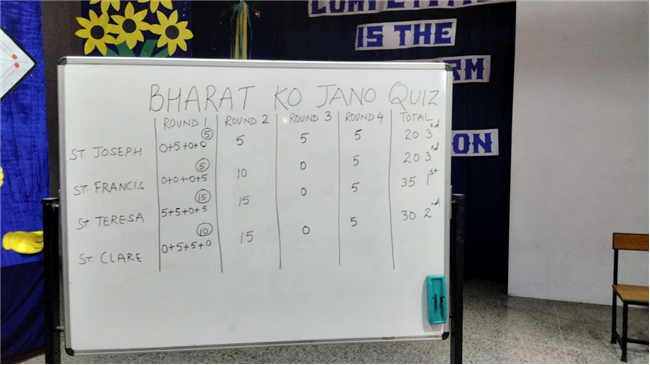 COMPETITION
IS THE
RM
ON
BHARAT KO JANO QUIZ
ROUND 1 ROUND 2 ROUND 3 ROUND 4 TOTAL
ST. JOSEPH 0+5+0+0 5 5 5 5 20 3rd
ST. FRANCIS 0+0+0+5 5 10 0 5 20 3rd
ST. TERESA 5+5+0+5 15 15 0 5 35 1st
ST. CLARE 0+5+5+0 10 15 0 5 30 2nd